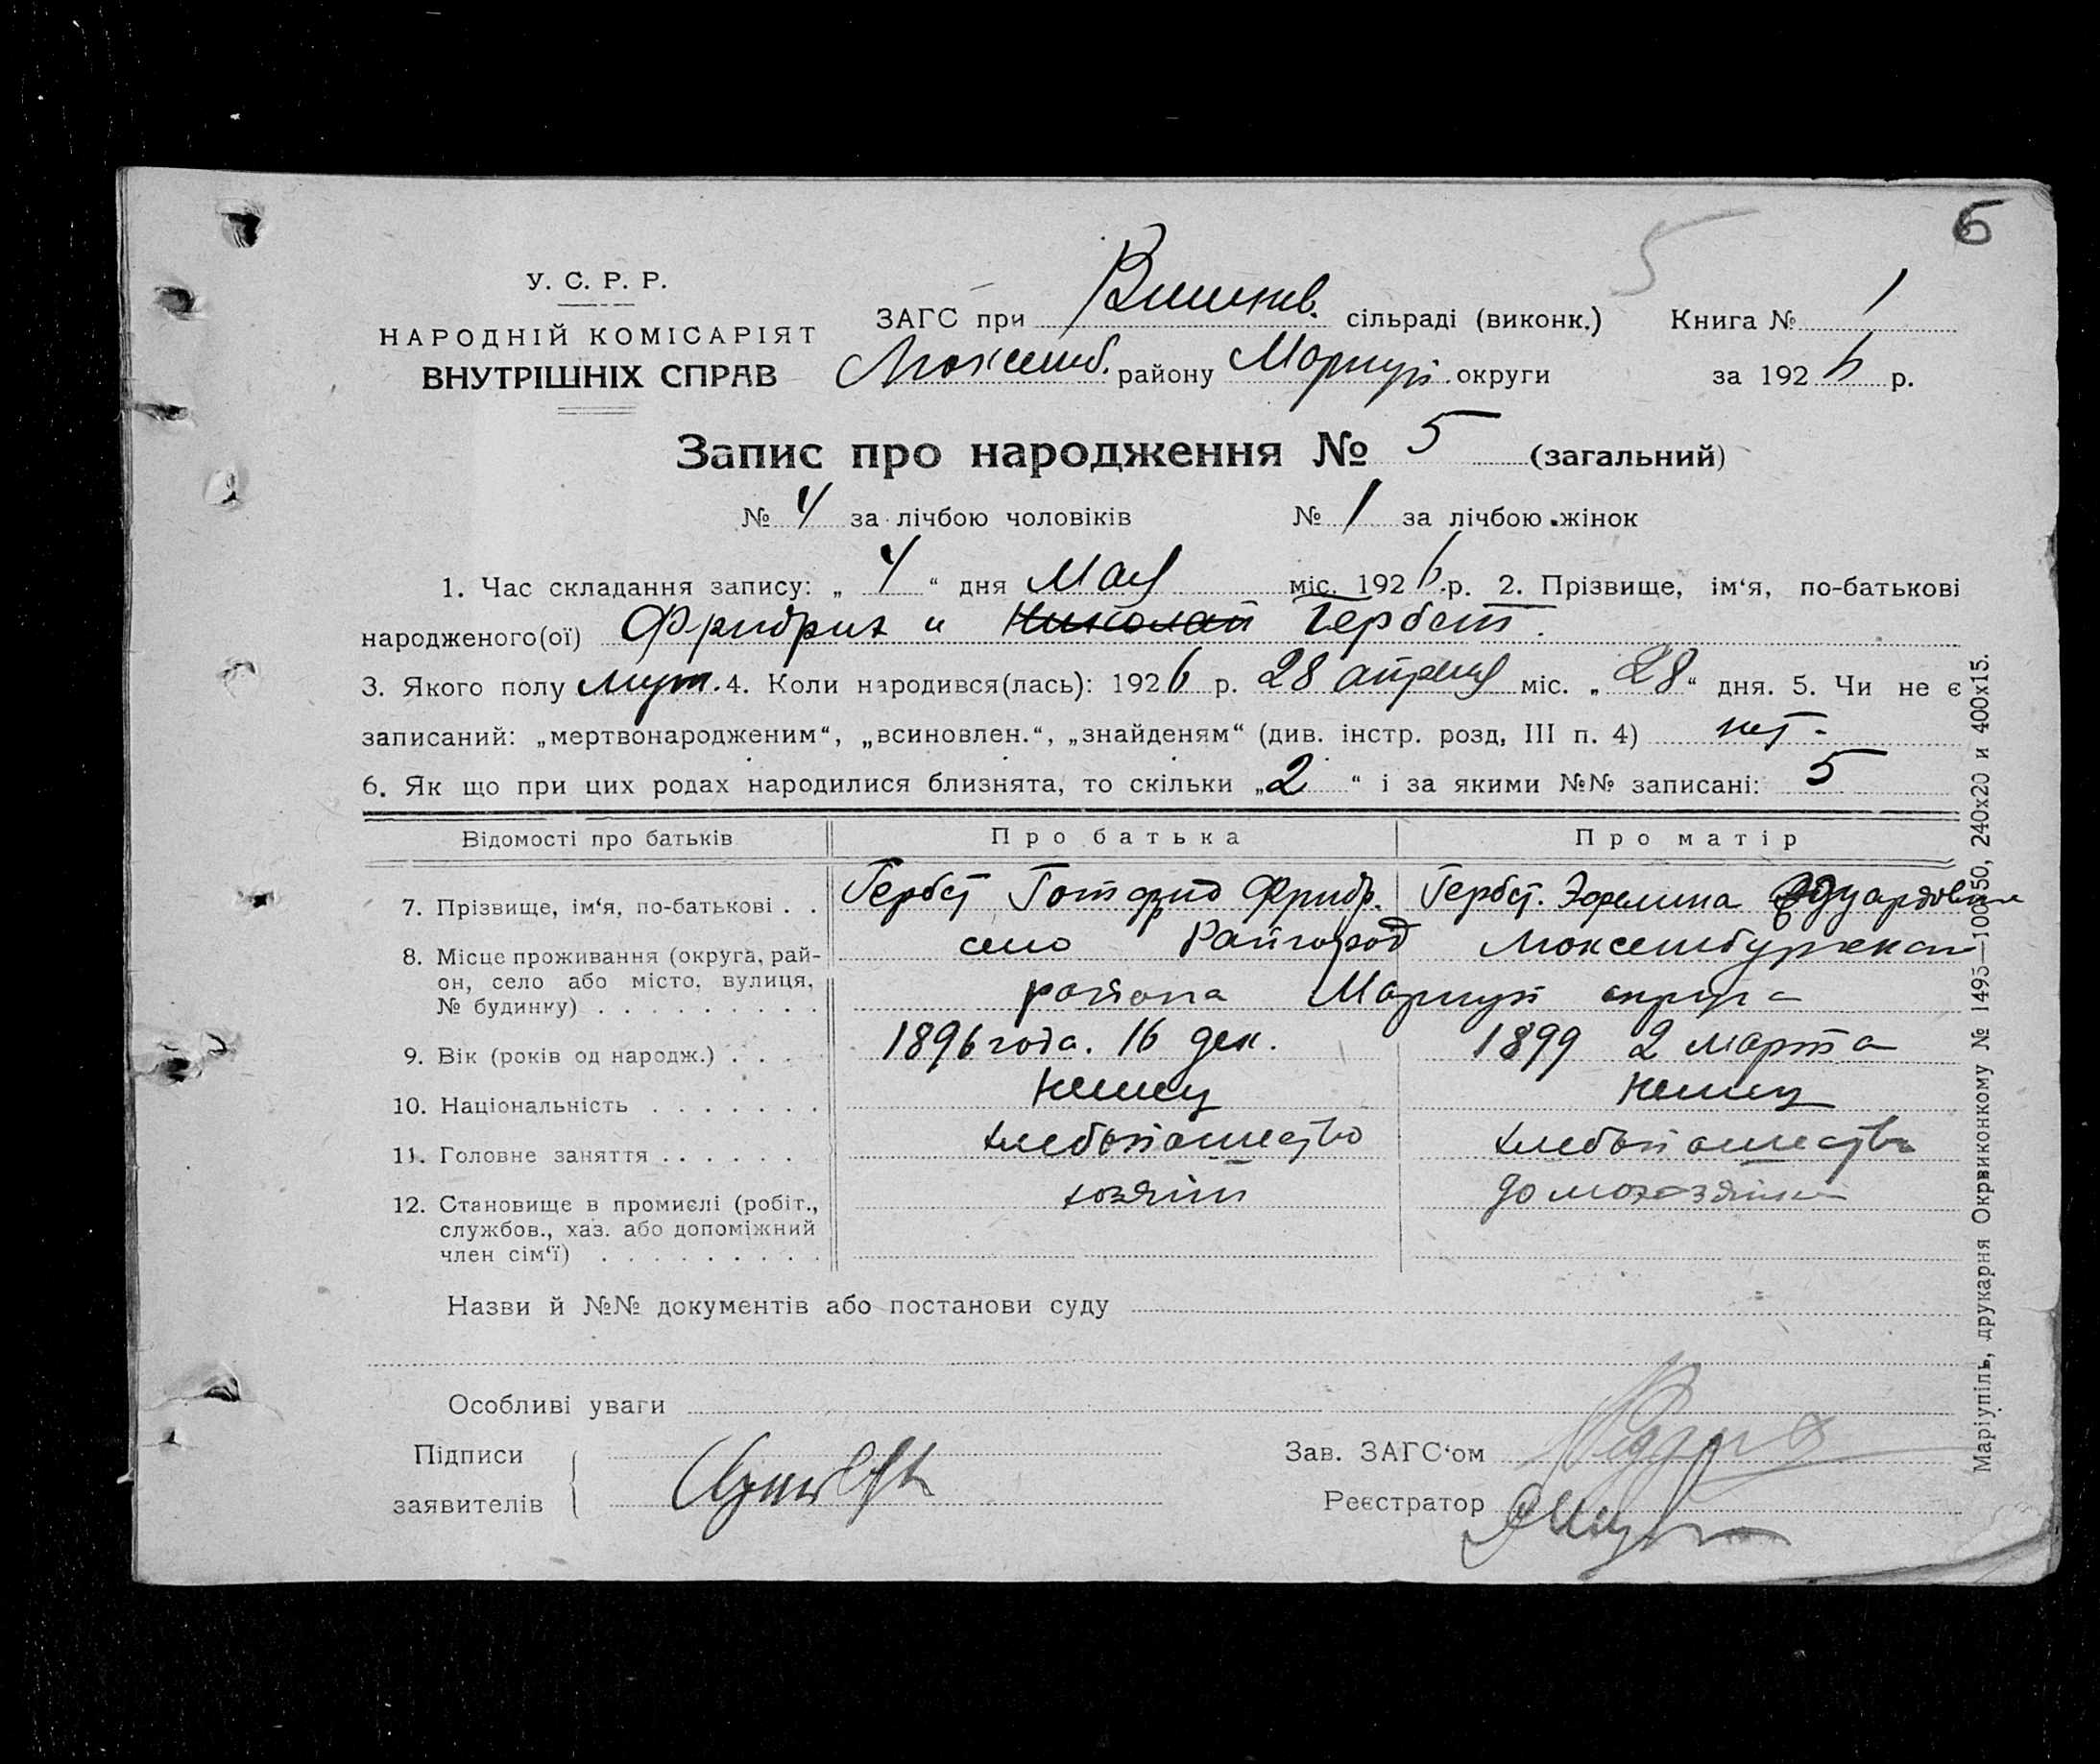 6
5
У. С. Р. Р.
НАРОДНІЙ КОМІСАРІЯТ
ВНУТРІШНІХ СПРАВ
ЗАГС при Вишнев. сільраді (виконк.) Книга № 1
Люксемб. району Мариуп. округи за 1926 р.
Запис про народження № 5 (загальний)
№ 4 за лічбою чоловіків № 1 за лічбою жінок
1. Час складання запису: „ 4 “ дня Мая міс. 1926 р. 2. Прізвище, ім‘я, по-батькові
народженого(ої) Фридрих и Николай Гербст.
3. Якого полу муж. 4. Коли народився(лась): 1926 р. 28 апреля міс. „ 28 “ дня. 5. Чи не є
записаний: „мертвонародженим“, „всиновлен.“, „знайденям“ (див. інстр. розд, III п. 4) нет -
6. Як що при цих родах народилися близнята, то скільки „ 2 “ і за якими №№ записані: 5
Відомості про батьків Про батька Про матір
7. Прізвище, ім‘я, по-батькові . . Гербст Готфрид Фридр. Гербст. Эфелина Эдуардовна
8. Місце проживання (округа, рай-
он, село або місто, вулиця,
№ будинку) . . . . . . . . .
село Райгород Люксембургском
района Мариуп округа
9. Вік (років од народж.) . . . . 1896 года. 16 дек. 1899 2 марта
10. Національність . . . . . . . немец немец
11. Головне заняття . . . . . . хлебопашество хлебопашество
12. Становище в промислі (робіт.,
службов., хаз. або допоміжний
член сім‘ї) . . . . . . . . .
хозяин домохозяйка
Назви й №№ документів або постанови суду
Особливі уваги
Підписи
заявителів
Зав. ЗАГС‘ом
Реєстратор
Маріупіль, друкарня Окрвиконкому № 1495—100х50, 240х20 и 400х15.